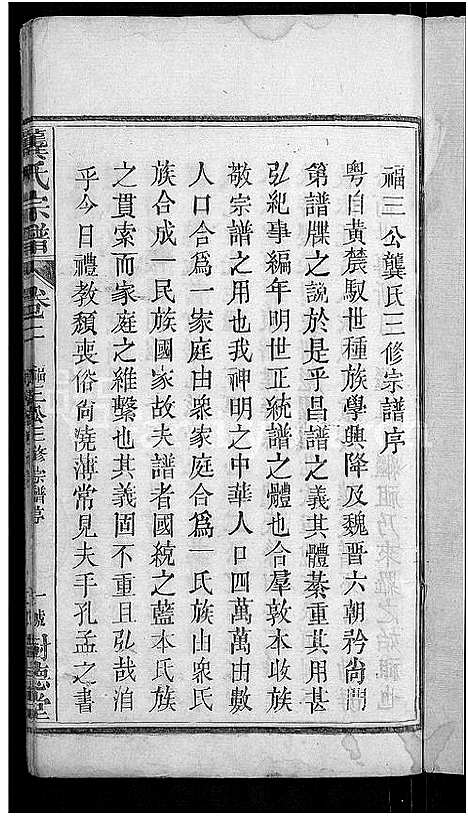 福三公龔氏三修宗譜序
粵自黃農馭世種族學興降及魏晉六朝矜尚門
第譜牒之說於是乎昌譜之義其體綦重其用甚
弘紀事編年明世正統譜之體也合羣敦本收族
敬宗譜之用也我神明之中華人口四萬萬由數
人口合爲一家庭由衆家庭合爲一氏族由衆氏
族合成一民族國家故夫譜者國統之藍本氏族
之貫索而家庭之維繫也其義固不重且弘哉洎
乎今日禮教頹喪俗尙澆漓常見夫手孔孟之書
龔氏宗譜
卷三
福三公三修宗譜序
一